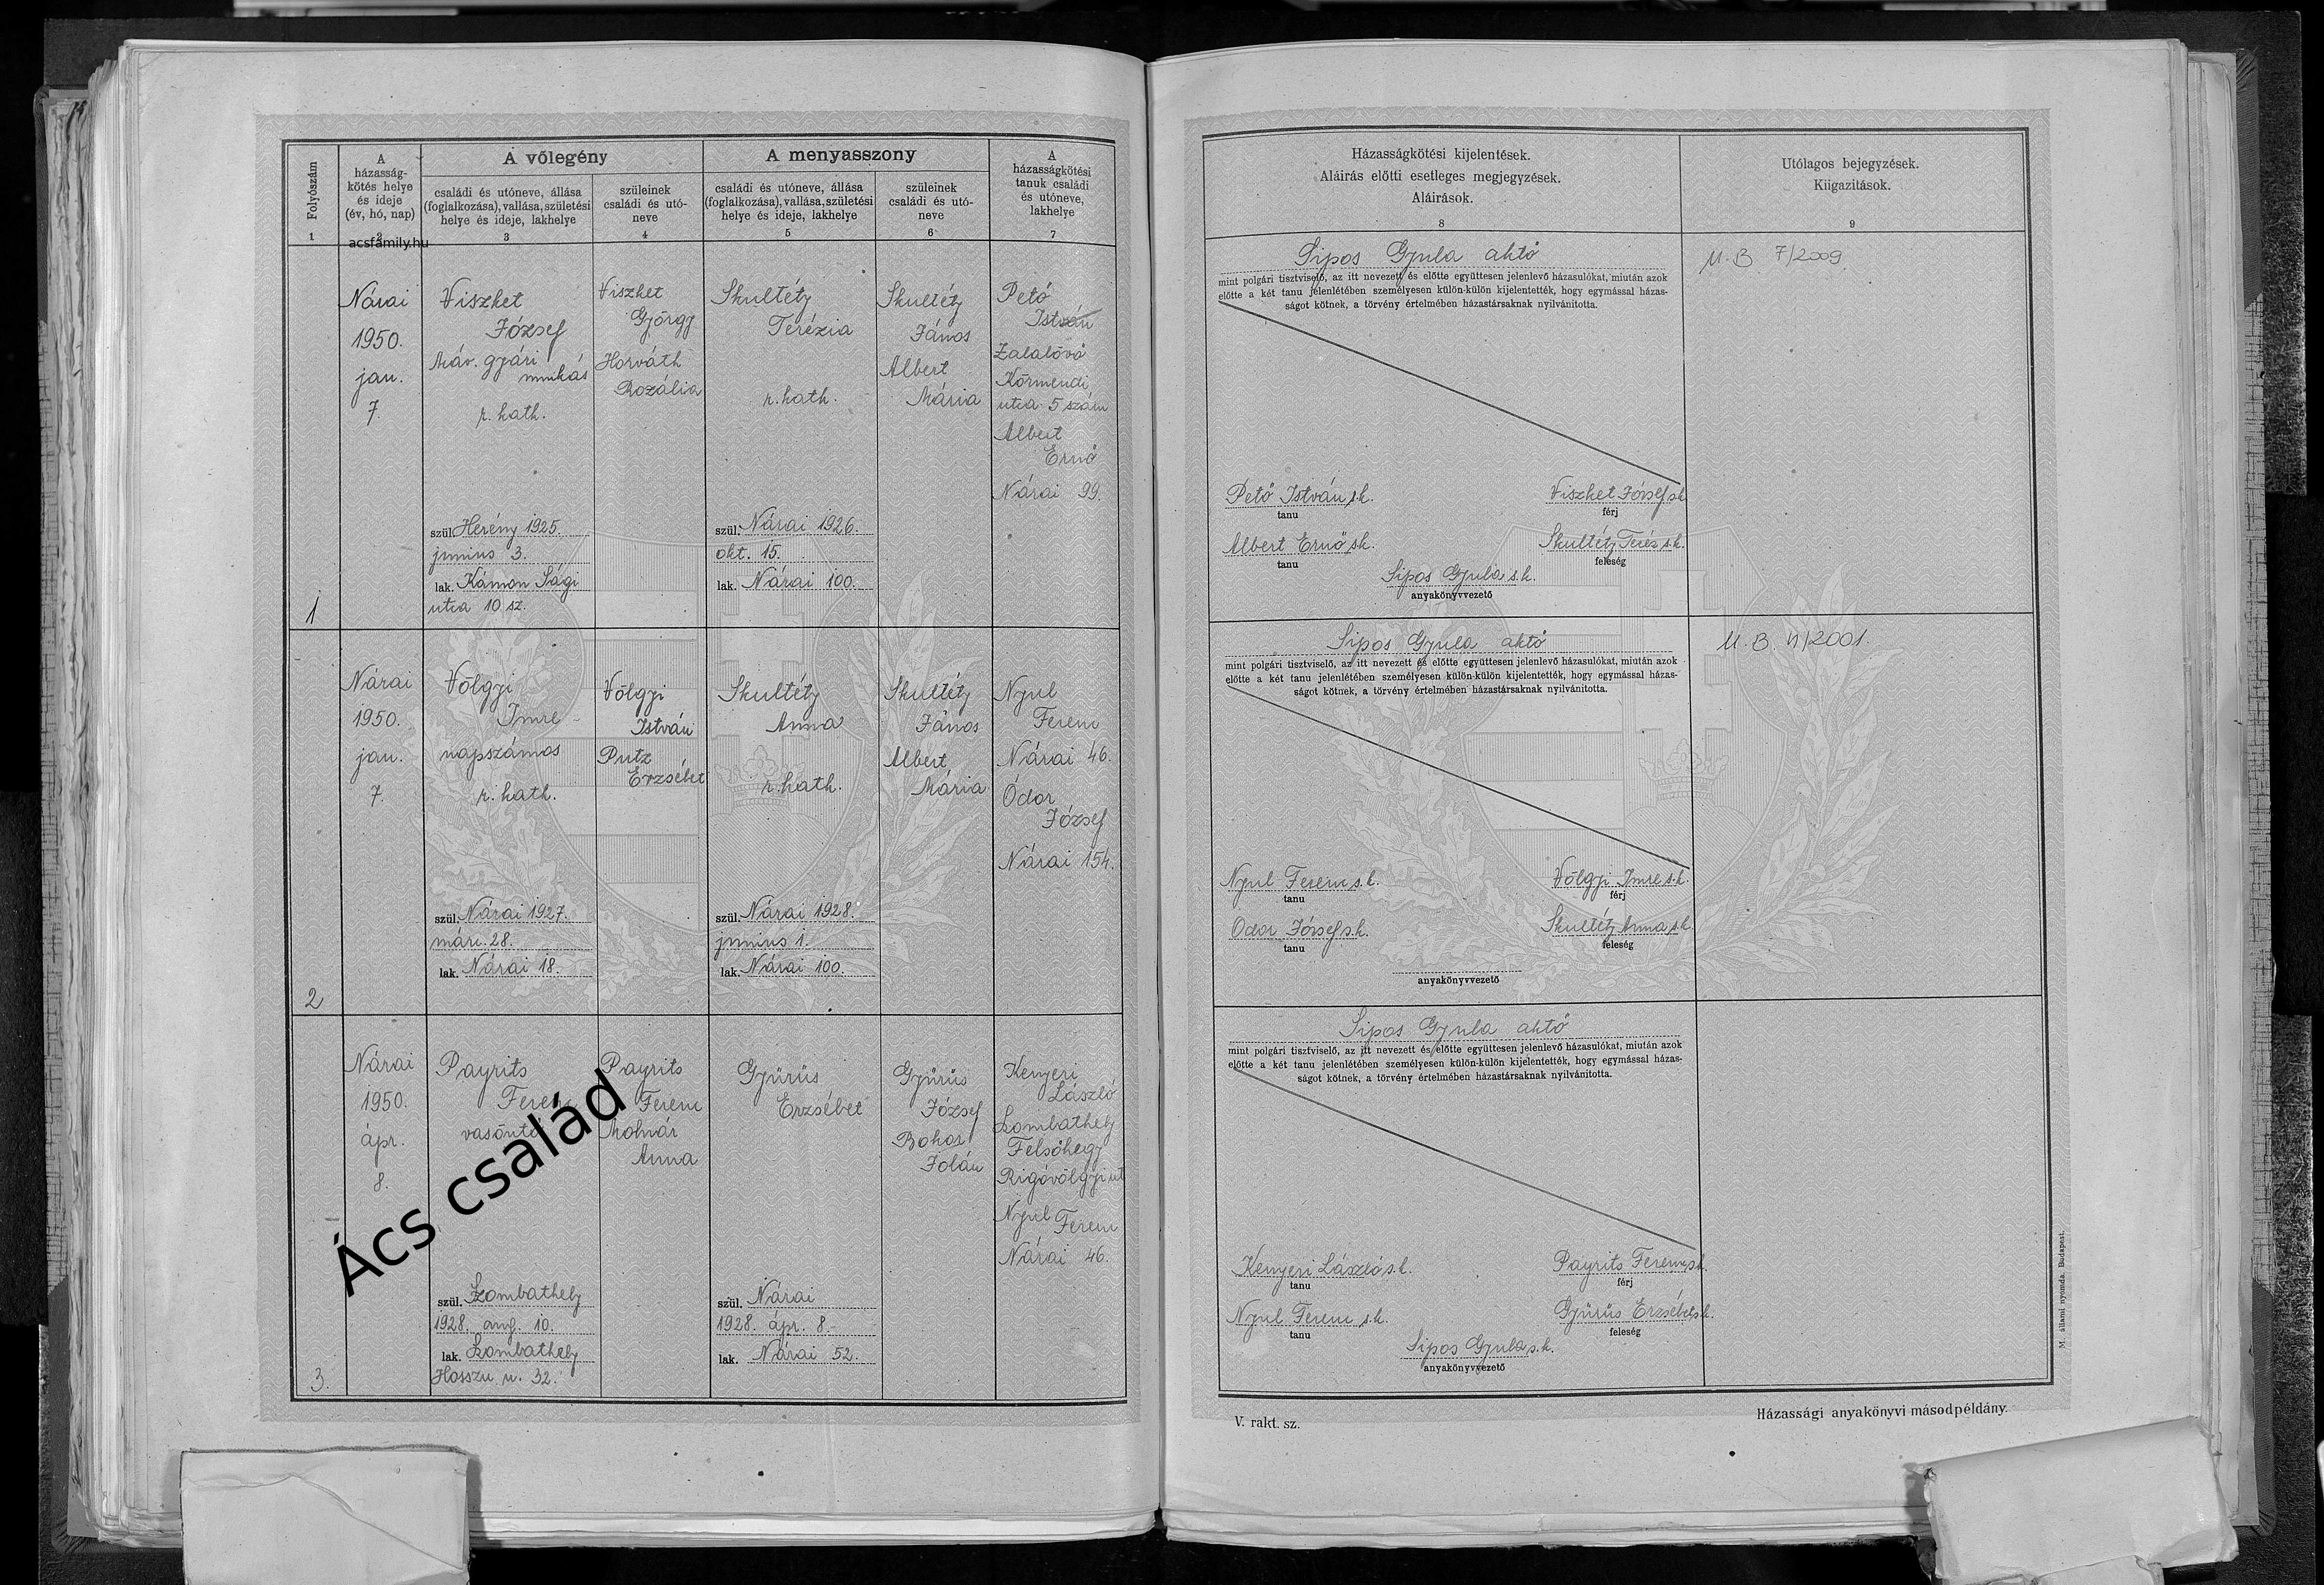 Folyószám
1
A
házasság-
kötés helye
és ideje
(év, hó, nap)
2
acsfamily.hu
A vőlegény
családi és utóneve, állása
(foglalkozása), vallása, születési
helye és ideje, lakhelye
3
szüleinek
családi és utó-
neve
4
A menyasszony
családi és utóneve, állása
(foglalkozása), vallása, születési
helye és ideje, lakhelye
5
szüleinek
családi és utó-
neve
6
A
házasságkötési
tanuk családi
és utóneve,
lakhelye
7
1
Nárai
1950.
jan.
7.
Viszket
József
Máv. gyári
munkás
r. kath.
szül. Herény 1925.
junius 3.
lak. Kámon Sági
utca 10 sz.
Viszket
György
Horváth
Rozália
Skultéty
Terézia
r. kath.
szül. Nárai 1926.
okt. 15.
lak. Nárai 100.
Skultéty
János
Albert
Mária
Pető
István
Zalalövő
Körmendi
utca 5 szám
Albert
Ernő
Nárai 99.
2
Nárai
1950.
jan.
7.
Völgyi
Imre
napszámos
r. kath.
szül. Nárai 1927.
márc. 28.
lak. Nárai 18.
Völgyi
István
Putz
Erzsébet
Skultéty
Anna
r. kath.
szül. Nárai 1928.
junius 1.
lak. Nárai 100.
Skultéty
János
Albert
Mária
Nyul
Ferenc
Nárai 46.
Ódor
József
Nárai 154.
3.
Nárai
1950.
ápr.
8.
Payrits
Ferenc
vasöntő
szül. Szombathely
1928. aug. 10.
lak. Szombathely
Hosszu u. 32.
Payrits
Ferenc
Molnár
Anna
Gyürüs
Erzsébet
szül. Nárai
1928. ápr. 8.
lak. Nárai 52.
Gyürüs
József
Bokor
Jolán
Kenyeri
László
Szombathely
Felsőhegy
Rigóvölgyi ut
Nyul Ferenc
Nárai 46.
Ács család
Házasságkötési kijelentések.
Aláirás előtti esetleges megjegyzések.
Aláirások.
8
Utólagos bejegyzések.
Kiigazitások.
9
Sipos Gyula aktő
mint polgári tisztviselő, az itt nevezett és előtte együttesen jelenlevő házasulókat, miután azok
előtte a két tanu jelenlétében személyesen külön-külön kijelentették, hogy egymással házas-
ságot kötnek, a törvény értelmében házastársaknak nyilvánitotta.
Pető István s.k.
tanu
Viszket József s.k.
férj
Albert Ernő s.k.
tanu
Skultéty Teréz s.k.
feleség
Sipos Gyula s.k.
anyakönyvvezető
M. B 7/2009
Sipos Gyula aktő
mint polgári tisztviselő, az itt nevezett és előtte együttesen jelenlevő házasulókat, miután azok
előtte a két tanu jelenlétében személyesen külön-külön kijelentették, hogy egymással házas-
ságot kötnek, a törvény értelmében házastársaknak nyilvánitotta.
Nyul Ferenc s.k.
tanu
Völgyi Imre s.k.
férj
Odor József s.k.
tanu
Skultéty Anna s.k.
feleség
anyakönyvvezető
M. B. /2001.
Sipos Gyula aktő
mint polgári tisztviselő, az itt nevezett és előtte együttesen jelenlevő házasulókat, miután azok
előtte a két tanu jelenlétében személyesen külön-külön kijelentették, hogy egymással házas-
ságot kötnek, a törvény értelmében házastársaknak nyilvánitotta.
Kenyeri László s.k.
tanu
Payrits Ferenc s.k.
férj
Nyul Ferenc s.k.
tanu
Gyürüs Erzsébet s.k.
feleség
Sipos Gyula s.k.
anyakönyvvezető
M. állami nyomda. Budapest.
V. rakt. sz.
Házassági anyakönyvi másodpéldány.